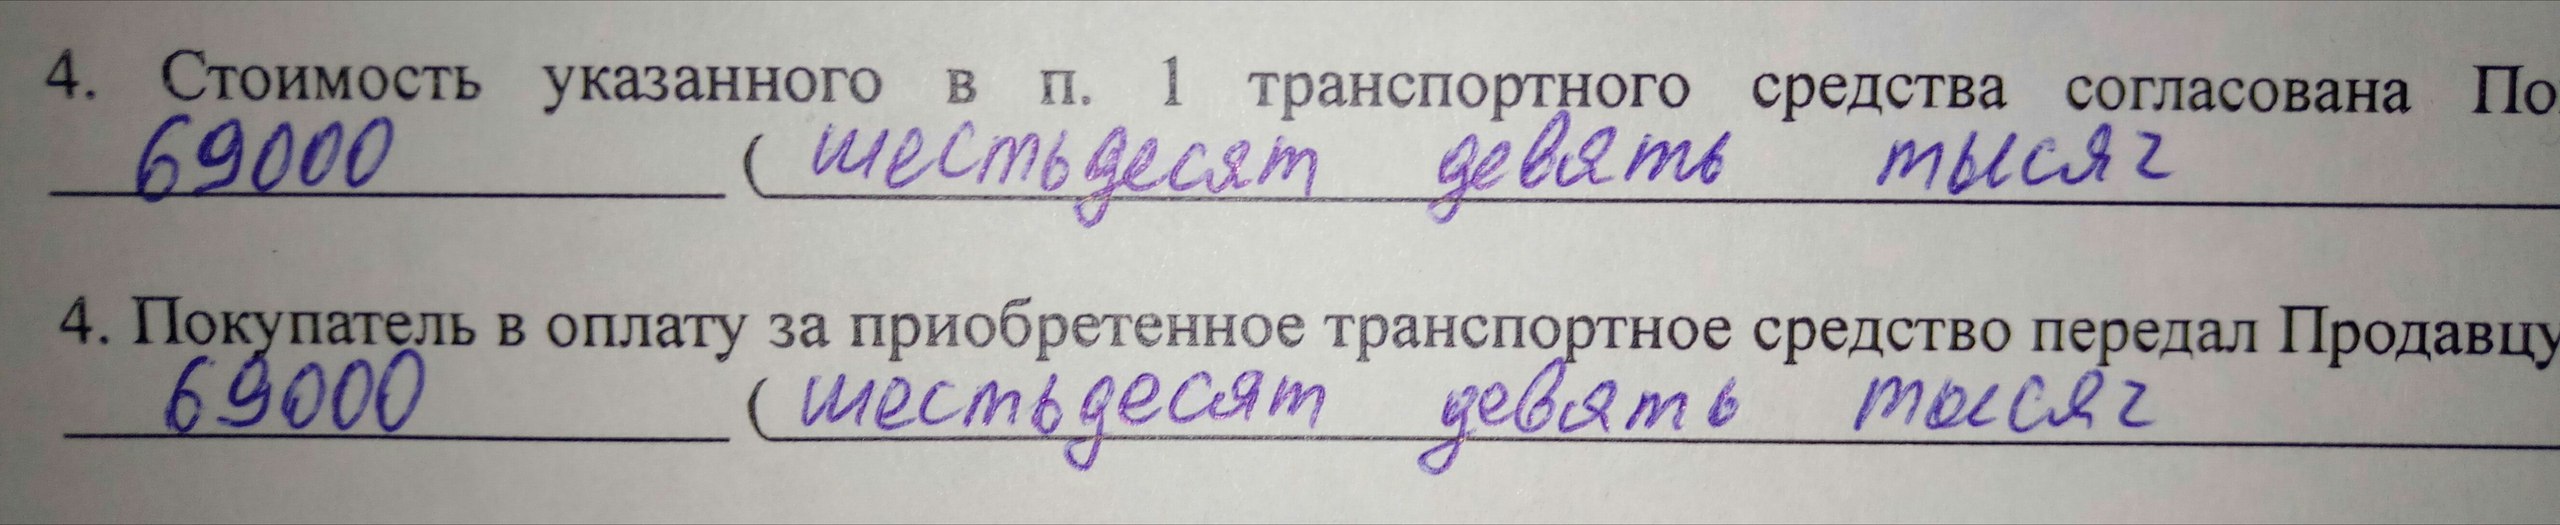 4. Стоимость указанного в п. 1 транспортного средства согласована По
69000 ( шестьдесят девять тысяч
4. Покупатель в оплату за приобретенное транспортное средство передал Продавцу
69000 ( шестьдесят девять тысяч